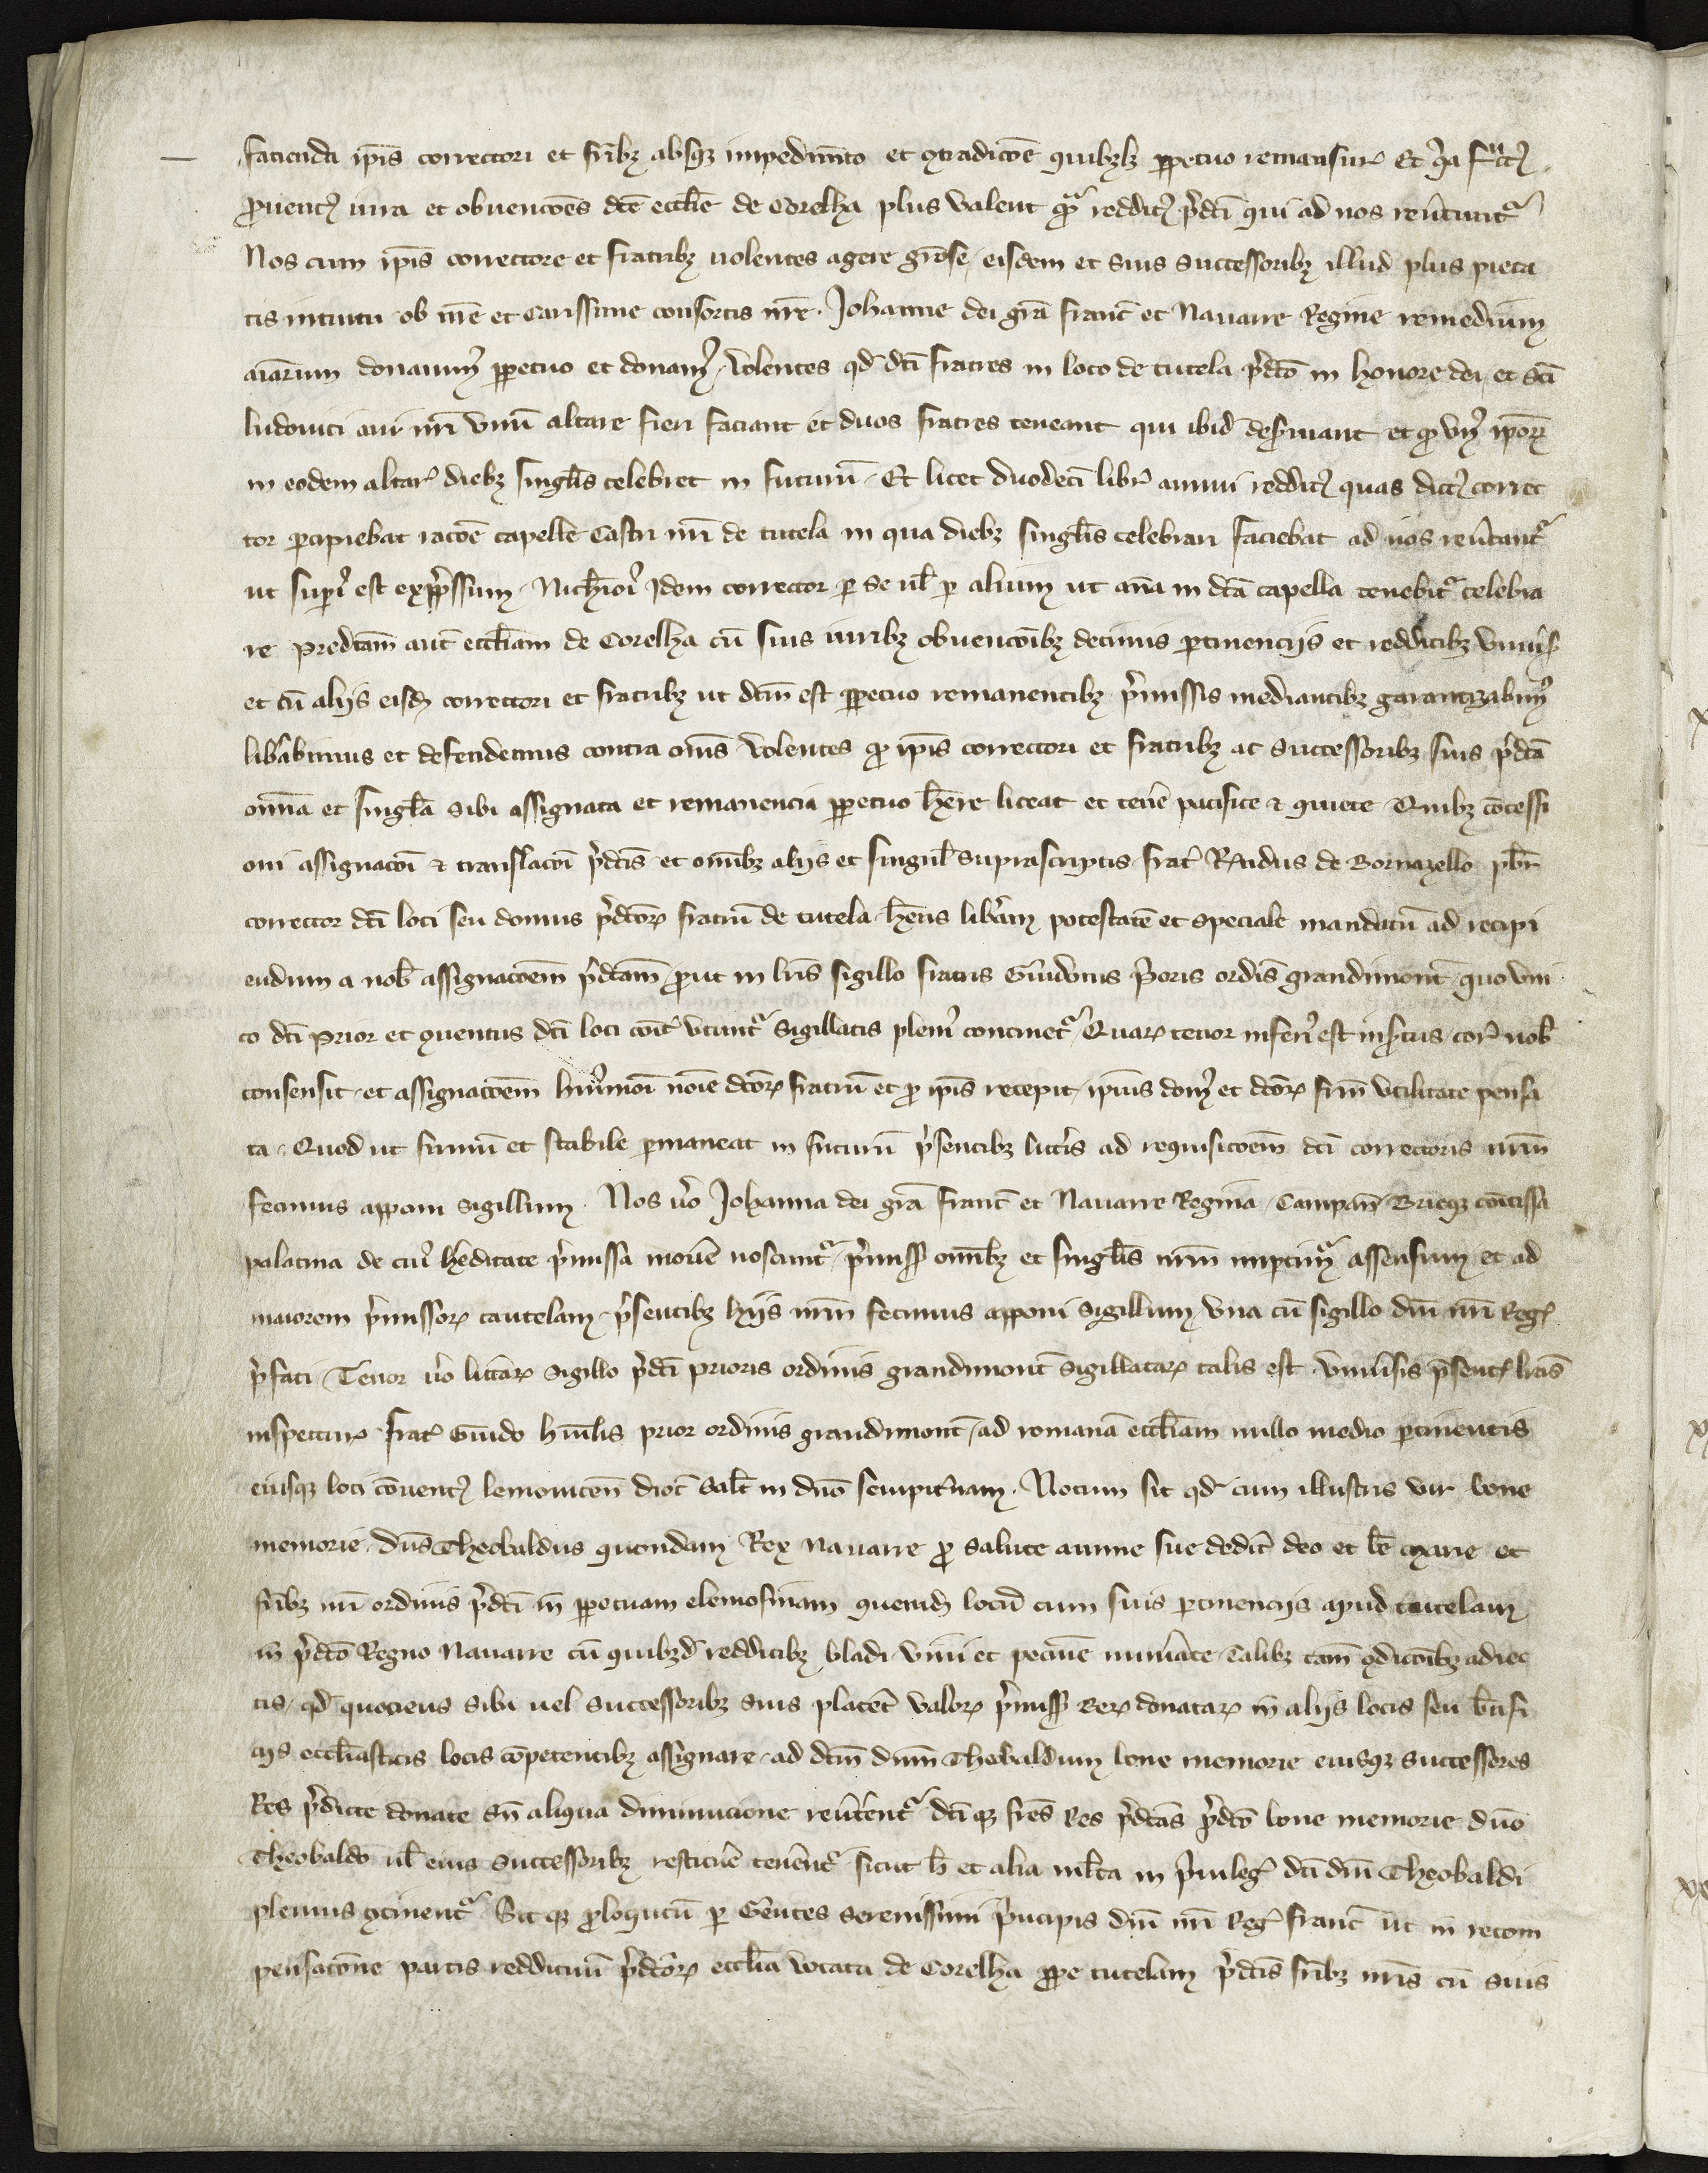 facienda ip̄is correctori et fr̄ibꝫ absqꝫ impedimēto et ꝯtradicōe quibꝫlꝫ ꝑpetuo remansurꝭ Et q̇a fruct᷒
ꝓuent᷒ iura et obuencōes dc̄e eccl̄ie de Corelha plus valent qꝫ reddit᷒ p̄dc̄i qui ad nos reūtuntᷣ
Nos cum ip̄is correctore et fratribꝫ uolentes agere gr̄ose eisdem et suis successoribꝫ illud plus pieta
tis intuitu ob nr̄e et carissime consortis nr̄e. Johanne dei gr̄a franc̄ et Nauarre Regine remedium
aīarum donauimꝰ ꝑpetuo et donamꝰ. Volentes qd̄ dc̄i fratres in loco de tutela p̄dc̄o in honore dei et Sc̄i
ludouici aui nr̄i vnū altare fieri faciant et duos fratres teneant qui ibid̄ deẜuiant et ꝙ vnꝰ ipoꝝ
in eodem altarꝭ diebꝫ singl̄is celebret in futurū. Et licet duodeci libr̄ annui reddit᷒ quas dict᷒ correc
tor ꝑcipiebat rac̄oe capelle Castri nr̄i de tutela in qua diebꝫ singl̄is celebrari faciebat ad nos reūtantᷣ
ut supiꝰ est expr̄ssum. Nichōiꝰ Idem corrector ꝑ se ul̄ ꝑ alium ut an̄a in dc̄a capella tenebitᷣ celebra
re predc̄am aut̄ eccl̄iam de Corelha cū suis iuribꝫ obuenc̄oibꝫ decimis ꝑtinenciis et redditibꝫ vniuꝭs
et cū aliis eisd̄ correctori et fratribꝫ ut dcm̄ est ꝑpetuo remanentibꝫ p̄missis mediantibꝫ garantizabimꝰ
lib̄abimus et defendemus contra om̄s Volentes ꝙ ip̄is correctori et fratribꝫ ac successoribꝫ suis p̄dc̄a
om̄ia et singl̄a sibi assignata et remanencia ꝑpetuo h̄ere liceat et ten̄e pacifice ⁊ quiete Quibꝫ cōcessi
oni assignac̄oi ⁊ translac̄oi p̄dc̄is et om̄ibꝫ aliis et singul̄ suprascriptis frat̄ R̄ndus de Bornazello pb̄r
corrector dc̄i loci seu domus p̄dcoꝝ fratrū de tutela h̄ens lib̄am potestatē et speciale mandatū ad recipi
endum a nob̄ assignac̄oem p̄dc̄am ꝓut in lr̄is sigillo fratris Guidonis p̄oris ordīs grandimont̄ quo vni
co dc̄i prior et ꝯuentus dc̄i loci cōit̄ utuntᷣ Sigillatis pleniꝰ continetᷣ Quaꝝ tenor inferiꝰ est insc̄tus corꝭ nob̄
consensit et assignac̄oem huiꝰmōi noīe dc̄oꝝ fratrū et ꝓ ip̄is recepit ip̄ius domꝰ et dc̄oꝝ fr̄m vtilitate pensa
ta. Quod ut firmū et stabile ꝑmaneat in futurū p̄sentibꝫ litt̄is ad requisic̄oem dc̄i correctoris nr̄m
fecimus apponi sigillum. Nos ūo Johanna dei gr̄a franc̄ et Nauarre Regina Campan̄ Brieqꝫ comitissa
palatina de cuiꝰ hereditate p̄missa mouē noscuntᷣ p̄missꝭ om̄ibꝫ et singl̄is nr̄m imptimᷣ assensum et ad
maiorem p̄missoꝝ cautelam p̄sentibꝫ hiis nr̄m fecimus apponi Sigillum vna cū sigillo dn̄i nr̄i Regꝭ
p̄fati Tenor ūo litt̄aꝝ Sigillo p̄dc̄i prioris ordinis grandimont̄ Sigillataꝝ talis est. Vniuꝭsis p̄sentꝭ lr̄as
inspecturꝭ frat̄ Guido huīlis prior ordinis grandimont̄ ad romanā eccl̄iam nullo medio ꝑtinentis
eiusqꝫ loci cōuent᷒ lemouicen̄ dioc̄ Sal̄t in dn̄o sempit̄nam. Notum sit qd̄ cum illustris vir bone
memorie dn̄s Theobaldus quondam Rex nauarre ꝓ salute anime sue dedit̄ deo et bē marie et
fr̄ibꝫ nr̄i ordinis p̄dc̄i in ꝑpetuam elemosinam quendā locū cum suis ꝑtinenciis apud tutelam
in p̄dc̄o Regno nauarre cū quibꝫd̄ redditibꝫ bladi vini et pecūie numāte talibꝫ tam̄ ꝯdic̄oibꝫ adiec
tis qd̄ quociens sibi uel successoribꝫ suis placet̄ valoꝝ p̄missꝭ reꝝ donataꝝ in aliis locis seu b̄nfi
ciis eccl̄iasticis locis cōpetentibꝫ assignare ad dcm̄ dn̄m Theobaldum bone memorie eiusqꝫ successores
Res p̄dicte donate sn̄ aliqua diminucione reūterentᷣ dc̄iqꝫ fr̄es Res p̄dc̄as p̄dc̄o bone memorie dn̄o
Theobaldo ul̄ eius successoribꝫ restituē tenerentᷣ sicut h̄ et alia ml̄ta in p̄uilegꝭ dc̄i dn̄i Theobaldi
plenius ꝯtinentᷣ Sitqꝫ ꝓlocutū ꝑ Gentes serenissimi p̄ncipis dn̄i nr̄i Regꝭ franc̄ ut in recom
pensac̄one partis reddituū p̄dc̄oꝝ eccl̄ia vocata de Corelha ꝓpe tutelam p̄dc̄is fr̄ibꝫ nr̄is cū suis